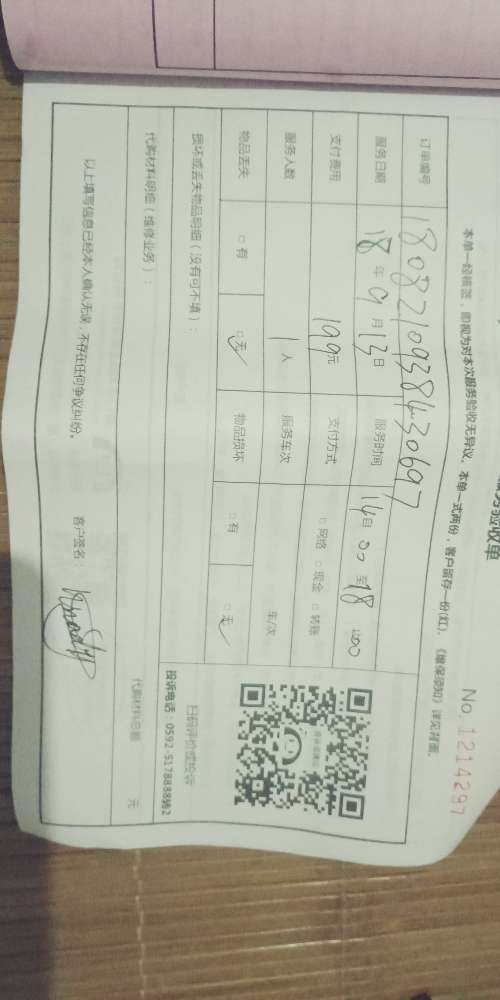 服务验收单
No.1214297
本单一经核签，即视为对本次服务验收无异议，本单一式两份，客户留存一份(红)，《增保须知》详见背面。
订单编号 1808210938430697
服务日期 18年9月13日 服务时间 14:00至18:00
支付费用 199元 支付方式 □网络 □现金 □转账
服务人数 1人 服务车次 车/次
物品丢失 □有 □无✓ 物品损坏 □有 □无✓
损坏或丢失物品明细（没有可不填）：
扫码评价或投诉
投诉电话：0592-5178888转2
代购材料明细（维修业务）：
代购材料总额 元
以上填写信息已经本人确认无误，不存在任何争议纠纷。
客户签名：